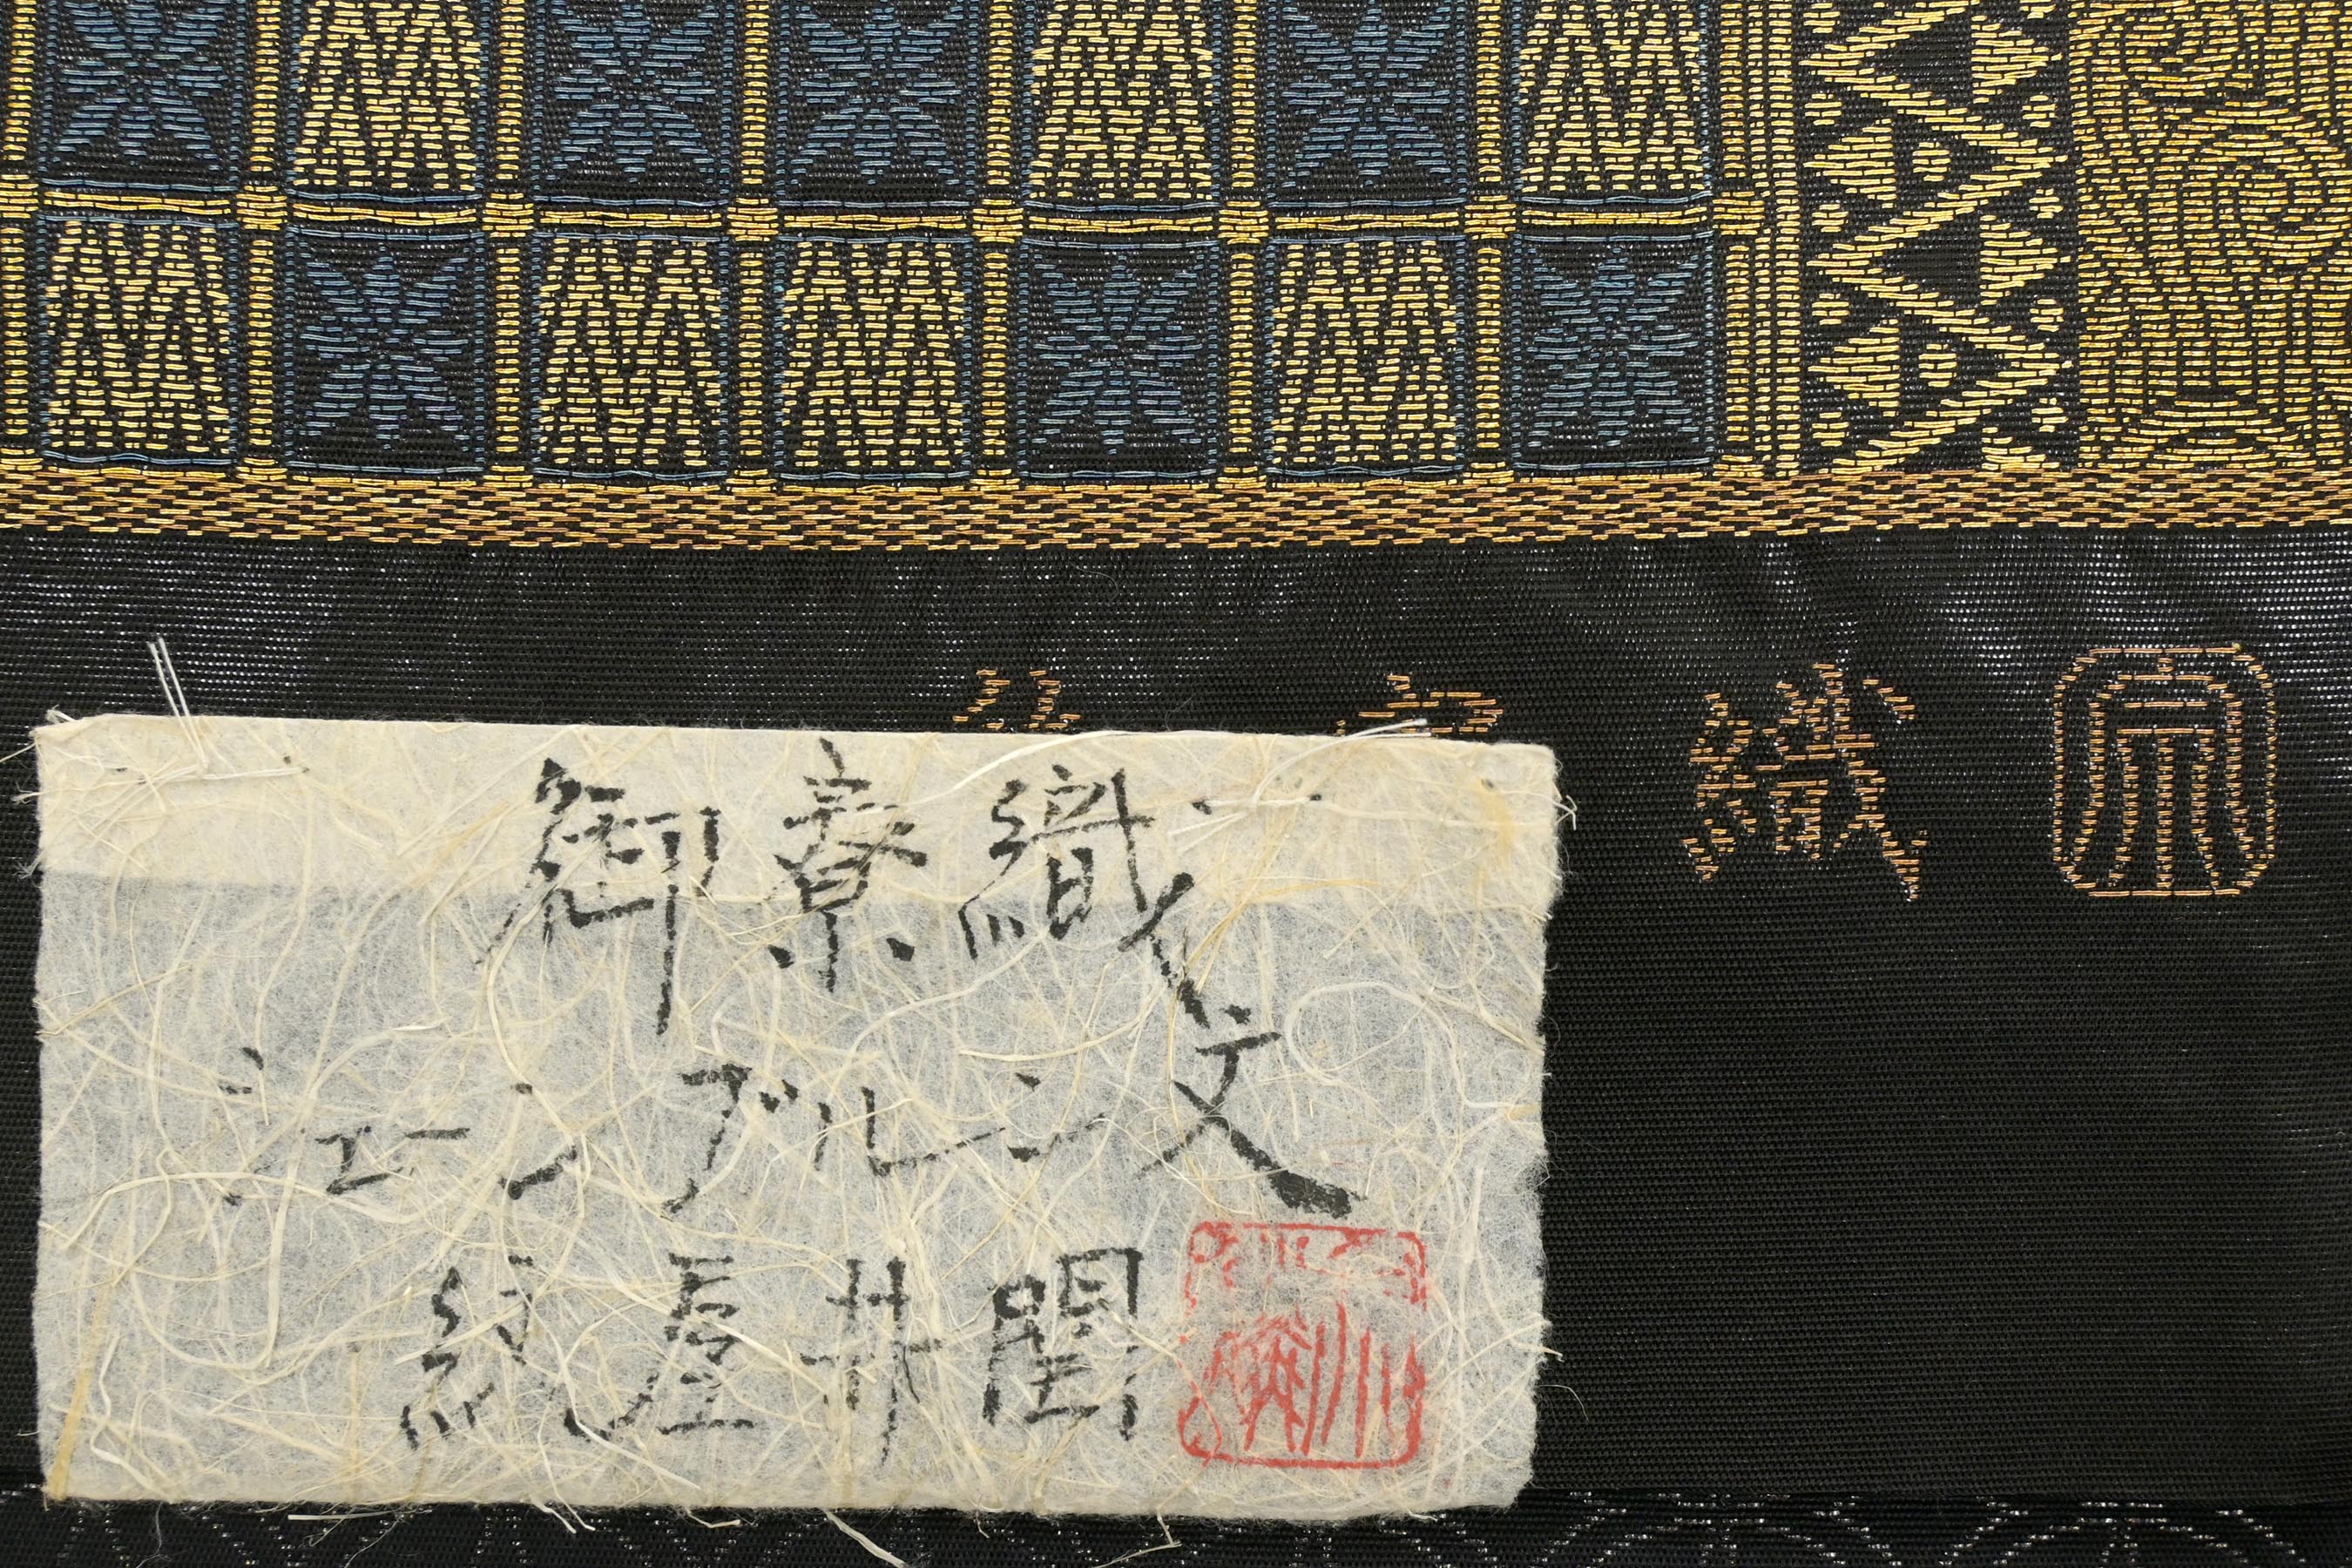 織
御寮織
シェーンブルン文
紋屋井関